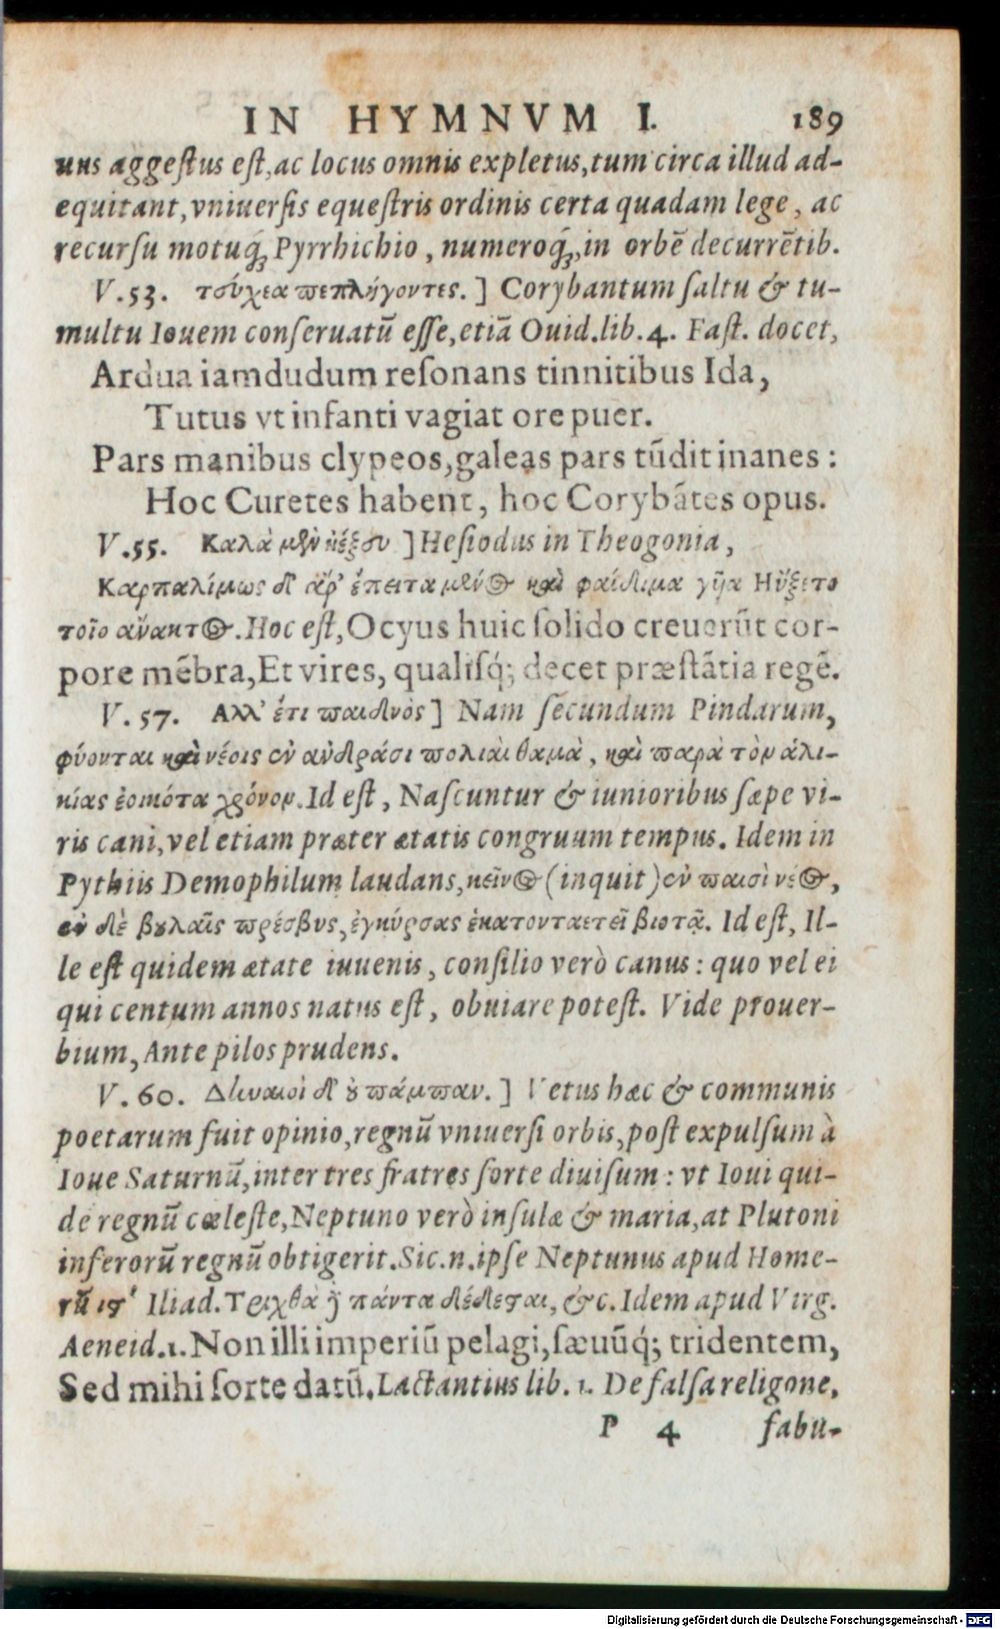 IN HYMNVM I. 189
uus aggestus est, ac locus omnis expletus, tum circa illud ad-
equitant, vniuersis equestris ordinis certa quadam lege, ac
recursu motuq́; Pyrrhichio, numeroq́;, in orbē decurrētib.
V. 53. τεύχεα πεπλήγοντες. ] Corybantum saltu & tu-
multu Iouem conseruatū esse, etiā Ouid. lib. 4. Fast. docet,
Ardua iamdudum resonans tinnitibus Ida,
Tutus vt infanti vagiat ore puer.
Pars manibus clypeos, galeas pars tūdit inanes:
Hoc Curetes habent, hoc Corybātes opus.
V. 55. Καλὰ μὲν ἠέξευ ] Hesiodus in Theogonia,
Καρπαλίμως δ' ἄρ' ἔπειτα μένος καὶ φαίδιμα γῦα Ηὔξετο
τοῖο ἄνακτος. Hoc est, Ocyus huic solido creuerūt cor-
pore mēbra, Et vires, qualisq́; decet præstātia regē.
V. 57. Αλλ' ἔτι παιδνὸς ] Nam secundum Pindarum,
φύονται καὶ νέοις ἐν ἀνδράσι πολιαὶ θαμὰ, καὶ παρὰ τὸν ἁλι-
κίας ἐοικότα χρόνον. Id est, Nascuntur & iunioribus sæpe vi-
ris cani, vel etiam præter ætatis congruum tempus. Idem in
Pythiis Demophilum laudans, κεῖνος (inquit) ἐν παισὶ νέος,
ἐν δὲ βουλαῖς πρέσβυς, ἐγκύρσας ἑκατονταετεῖ βιοτᾷ. Id est, Il-
le est quidem ætate iuuenis, consilio verò canus: quo vel ei
qui centum annos natus est, obuiare potest. Vide prouer-
bium, Ante pilos prudens.
V. 60. Δηναιοὶ δ' οὐ πάμπαν. ] Vetus hæc & communis
poetarum fuit opinio, regnū vniuersi orbis, post expulsum à
Ioue Saturnū, inter tres fratres sorte diuisum: vt Ioui qui-
dē regnū cœleste, Neptuno verò insulæ & maria, at Plutoni
inferorū regnū obtigerit. Sic.n. ipse Neptunus apud Home-
rū ιϛ' Iliad. Τριχθὰ δὲ πάντα δέδασται, &c. Idem apud Virg.
Aeneid. 1. Non illi imperiū pelagi, sæuūq́; tridentem,
Sed mihi sorte datū. Lactantius lib. 1. De falsa religone,
P 4 fabu-
Digitalisierung gefördert durch die Deutsche Forschungsgemeinschaft - DFG